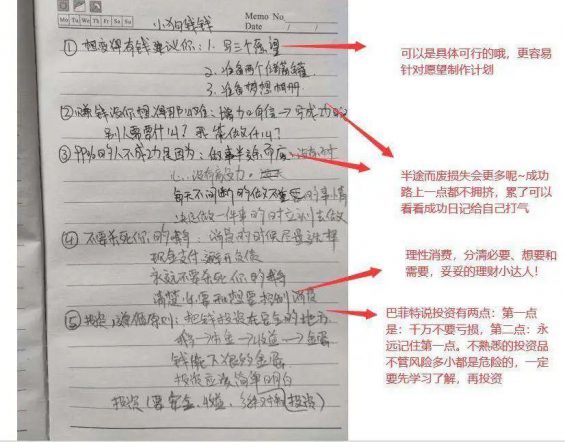 小狗钱钱
Memo No.
Mo Tu We Th Fr Sa Su
Date / /
① 想变得有钱建议你：1. 写三个愿望
2. 准备两个储蓄罐
3. 准备梦想相册
② 赚钱没你想得那么难：增加自信→写成功日
别人需要什么？我能做什么？
③ 99%的人不成功是因为：做事半途而废
心、没有
每天不间断的做不重要的事情
决定做一件事的时立刻去做
④ 不要杀死你的鹅：消费的时候尽量选择
现金支付
永远不要杀死你的鹅
清楚必要和想要控制消费
⑤ 投资 原则：把钱投资在安全的地方
鹅→ →收益→金蛋
钱能下很多金蛋
投资应该简单明白
投资（ 安全、收益、 投资）
可以是具体可行的哦，更容易
针对愿望制作计划
半途而废损失会更多呢~成功
路上一点都不拥挤，累了可以
看看成功日记给自己打气
理性消费，分清必要、想要和
需要，妥妥的理财小达人！
巴菲特说投资有两点：第一点
是：千万不要亏损，第二点：永
远记住第一点。不熟悉的投资品
不管风险多小都是危险的，一定
要先学习了解，再投资